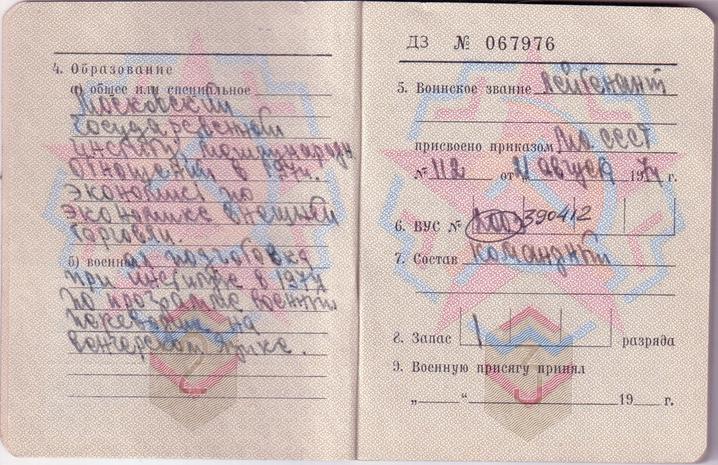 4. Образование
а) общее или специальное
Московский
государственный
институт международн.
отношений в 1974г.
экономист по
экономике внешней
торговли.
б) военное подготовка
при институте в 1974
по программе военн.
на
венгерском языке.
ДЗ № 067976
5. Воинское звание лейтенант
присвоено приказом МО СССР
№ 112 от 21 август 1974 г.
6. ВУС № 390412
7. Состав командный
8. Запас 1 разряда
9. Военную присягу принял
„ “ 19 г.